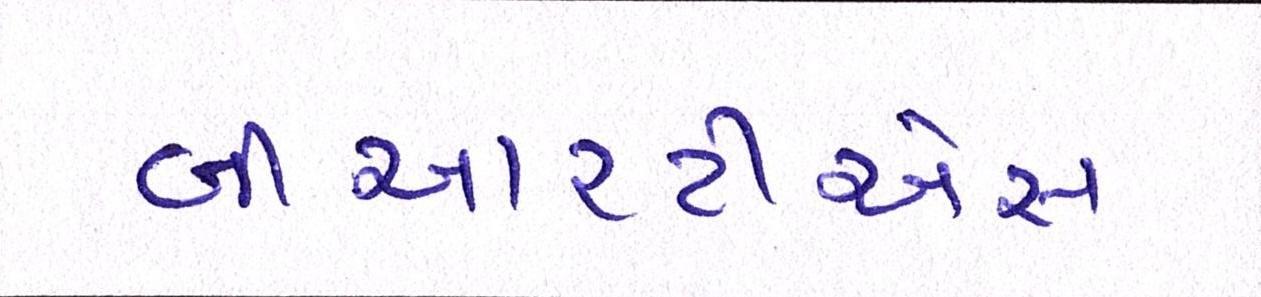 બીઆરટીએસ